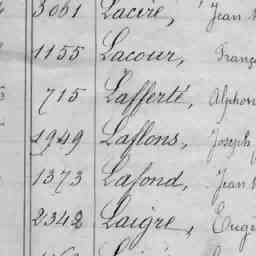 3061 Lacire, Jean
1155 Lacour, Franç
715 Lafferté, Alphon
1949 Laflons, Joseph
1373 Lafond, Jean
2342 Laigre, Eugè